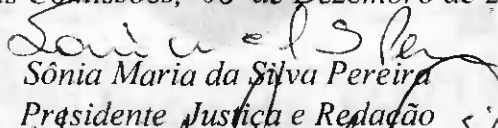 Comissões, 06 de Dezembro de
Sônia Maria da Silva Pereira
Presidente Justiça e Redação